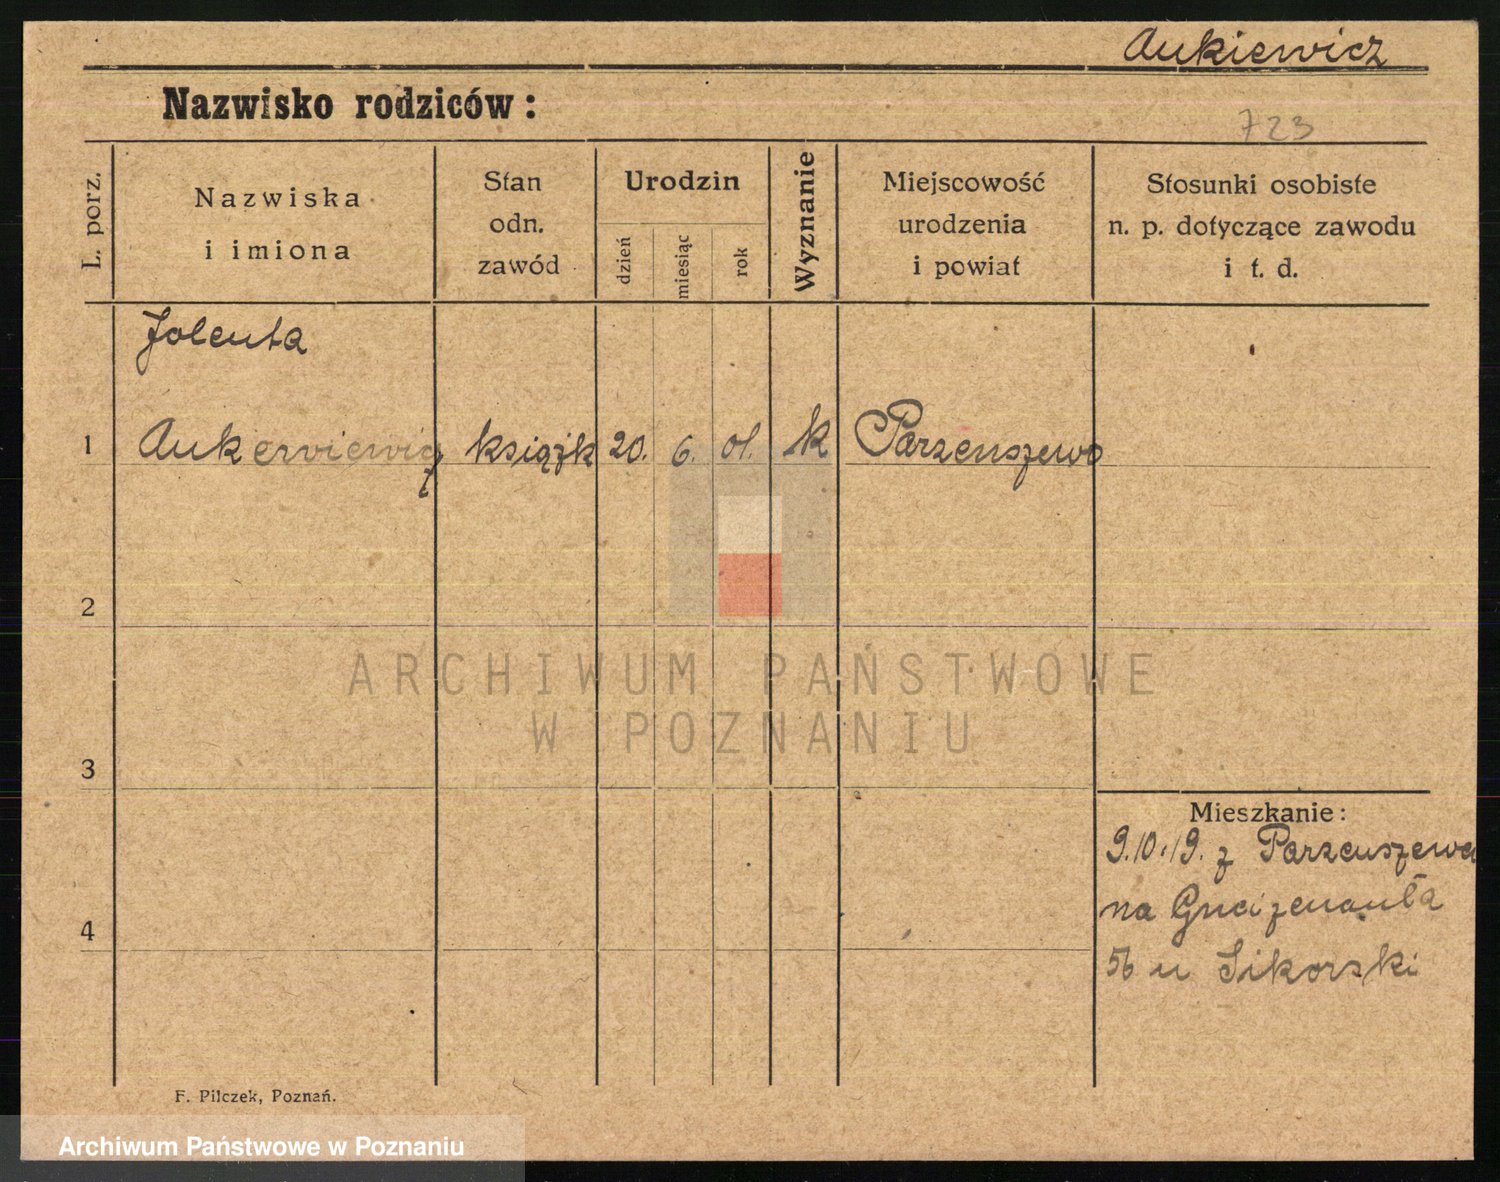 Aukiewicz
Nazwisko rodziców:
723
L. porz.
Nazwiska
i imiona
Stan
odn.
zawód
Urodzin
dzień
miesiąc
rok
Wyznanie
Miejscowość
urodzenia
i powiat
Stosunki osobiste
n. p. dotyczące zawodu
i t. d.
Jolenta
1 książk 20. 6. 01. k Parzenszewo
2
3
4
Mieszkanie:
9.10.19. z Parzenszewa
na Gneizenauta
56 u Sikorski
F. Pilczek, Poznań.
ARCHIWUM PAŃSTWOWE
W POZNANIU
Archiwum Państwowe w Poznaniu